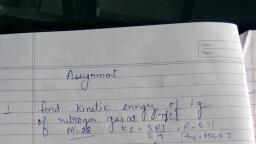 Assignment
1 find kinetic energy of 1g
of nitrogen gas at 77°C
M=28 K.E = 3 RT / 2 M , R = 8.31
Ans = 155.8 J